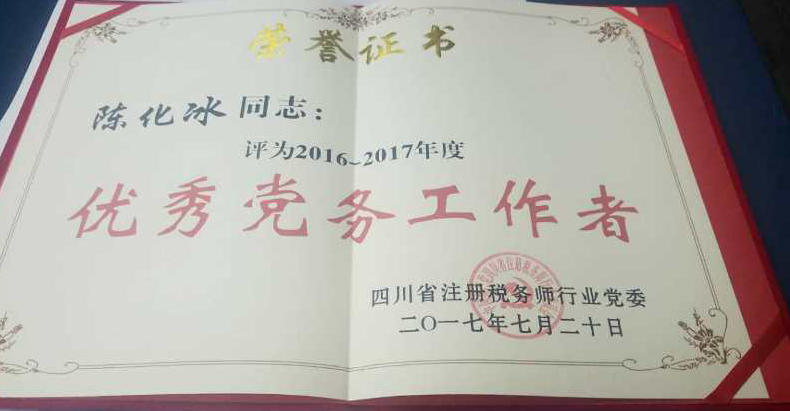 荣誉证书
陈化冰同志：
评为2016~2017年度
优秀党务工作者
四川省注册税务师行业党委
二〇一七年七月二十日